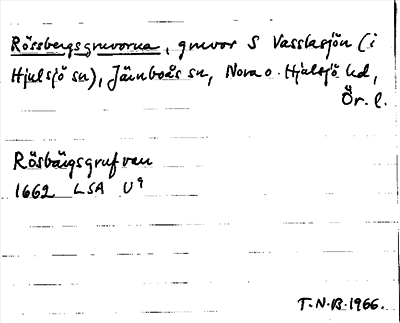 Rössbergsgruvorna, gruvor S Vasslasjön (i
Hjulsjö sn), Järnboås sn, Nora o. Hjulsjö hd,
Ör. l.
Rösbärgsgrufvan
1662 LSA U9
T.N.B. 1966.